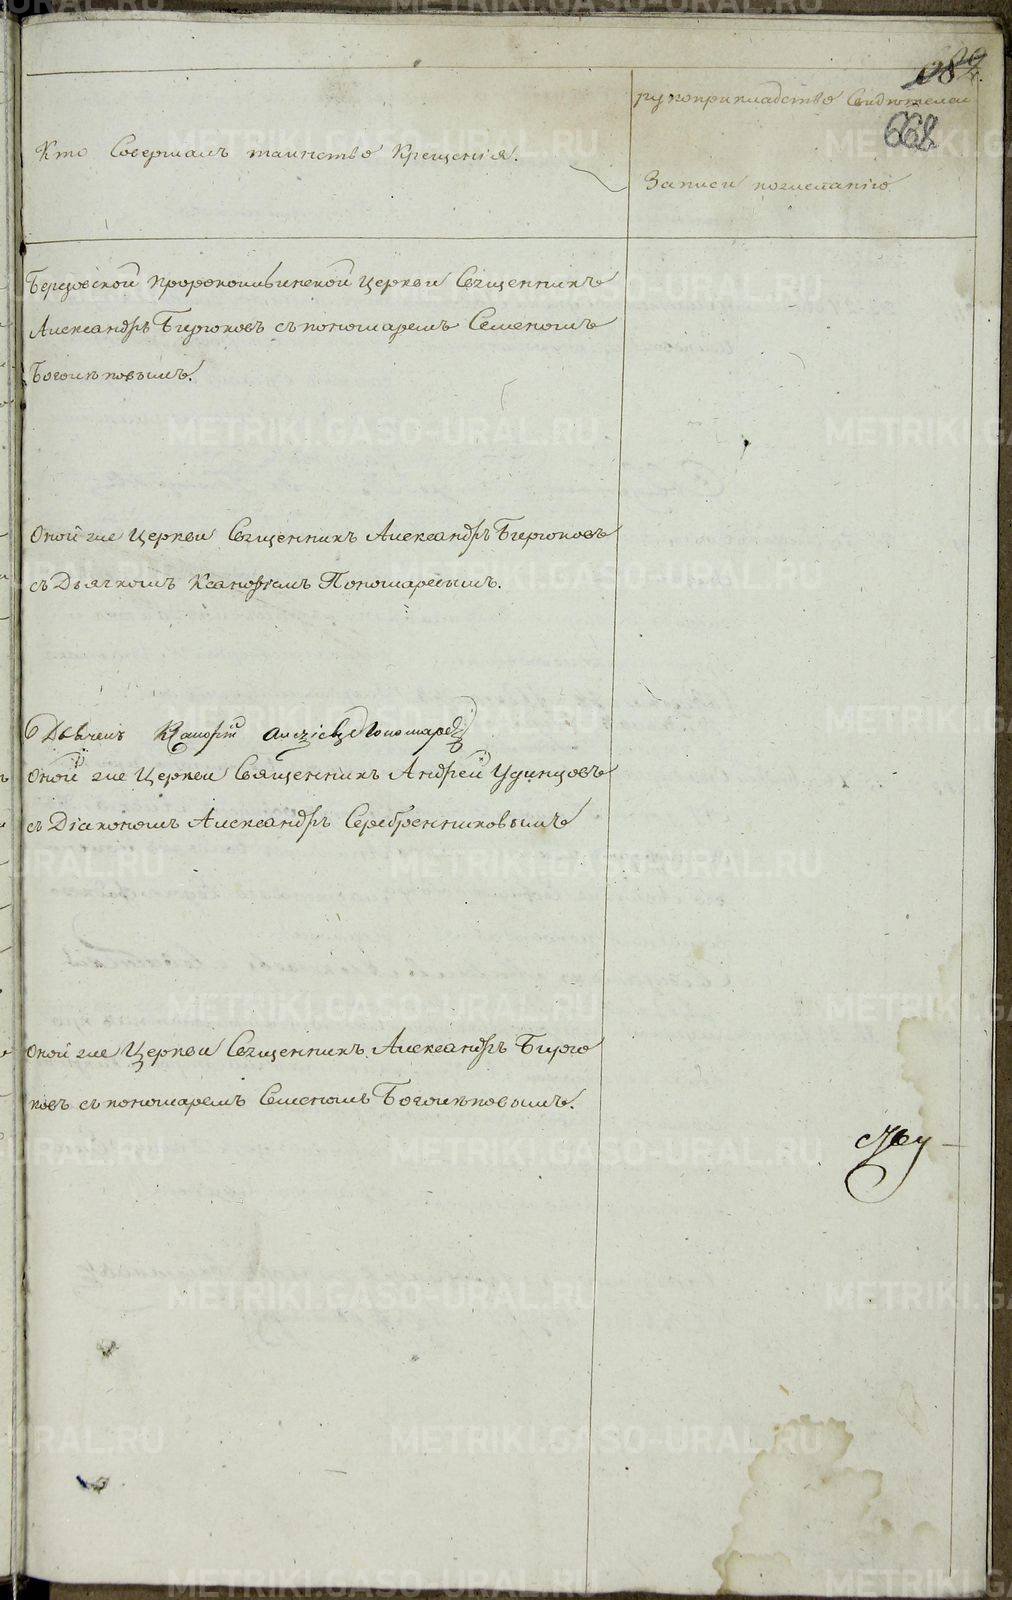 668
рукоприкладство Свидѣтелей
Кто Совершалъ таинство Крещенія.
Записи по желанію
Березовской Пророкоильинской Церкви Священникъ
Александръ Бирюковъ съ пономаремъ Семеномъ
Боголѣповымъ.
Оной же Церкви Священникъ Александръ Бирюковъ
съ Дьячкомъ Ксанофомъ Пономаревымъ.
Дьячекъ Пономаревъ
Оной же Церкви Священникъ Андрей Удинцовъ
съ Діакономъ Александръ Серебренниковымъ
Оной же Церкви Священникъ Александръ Бирю
ковъ съ пономаремъ Семеномъ Боголѣповымъ.
METRIKI.GASO-URAL.RU